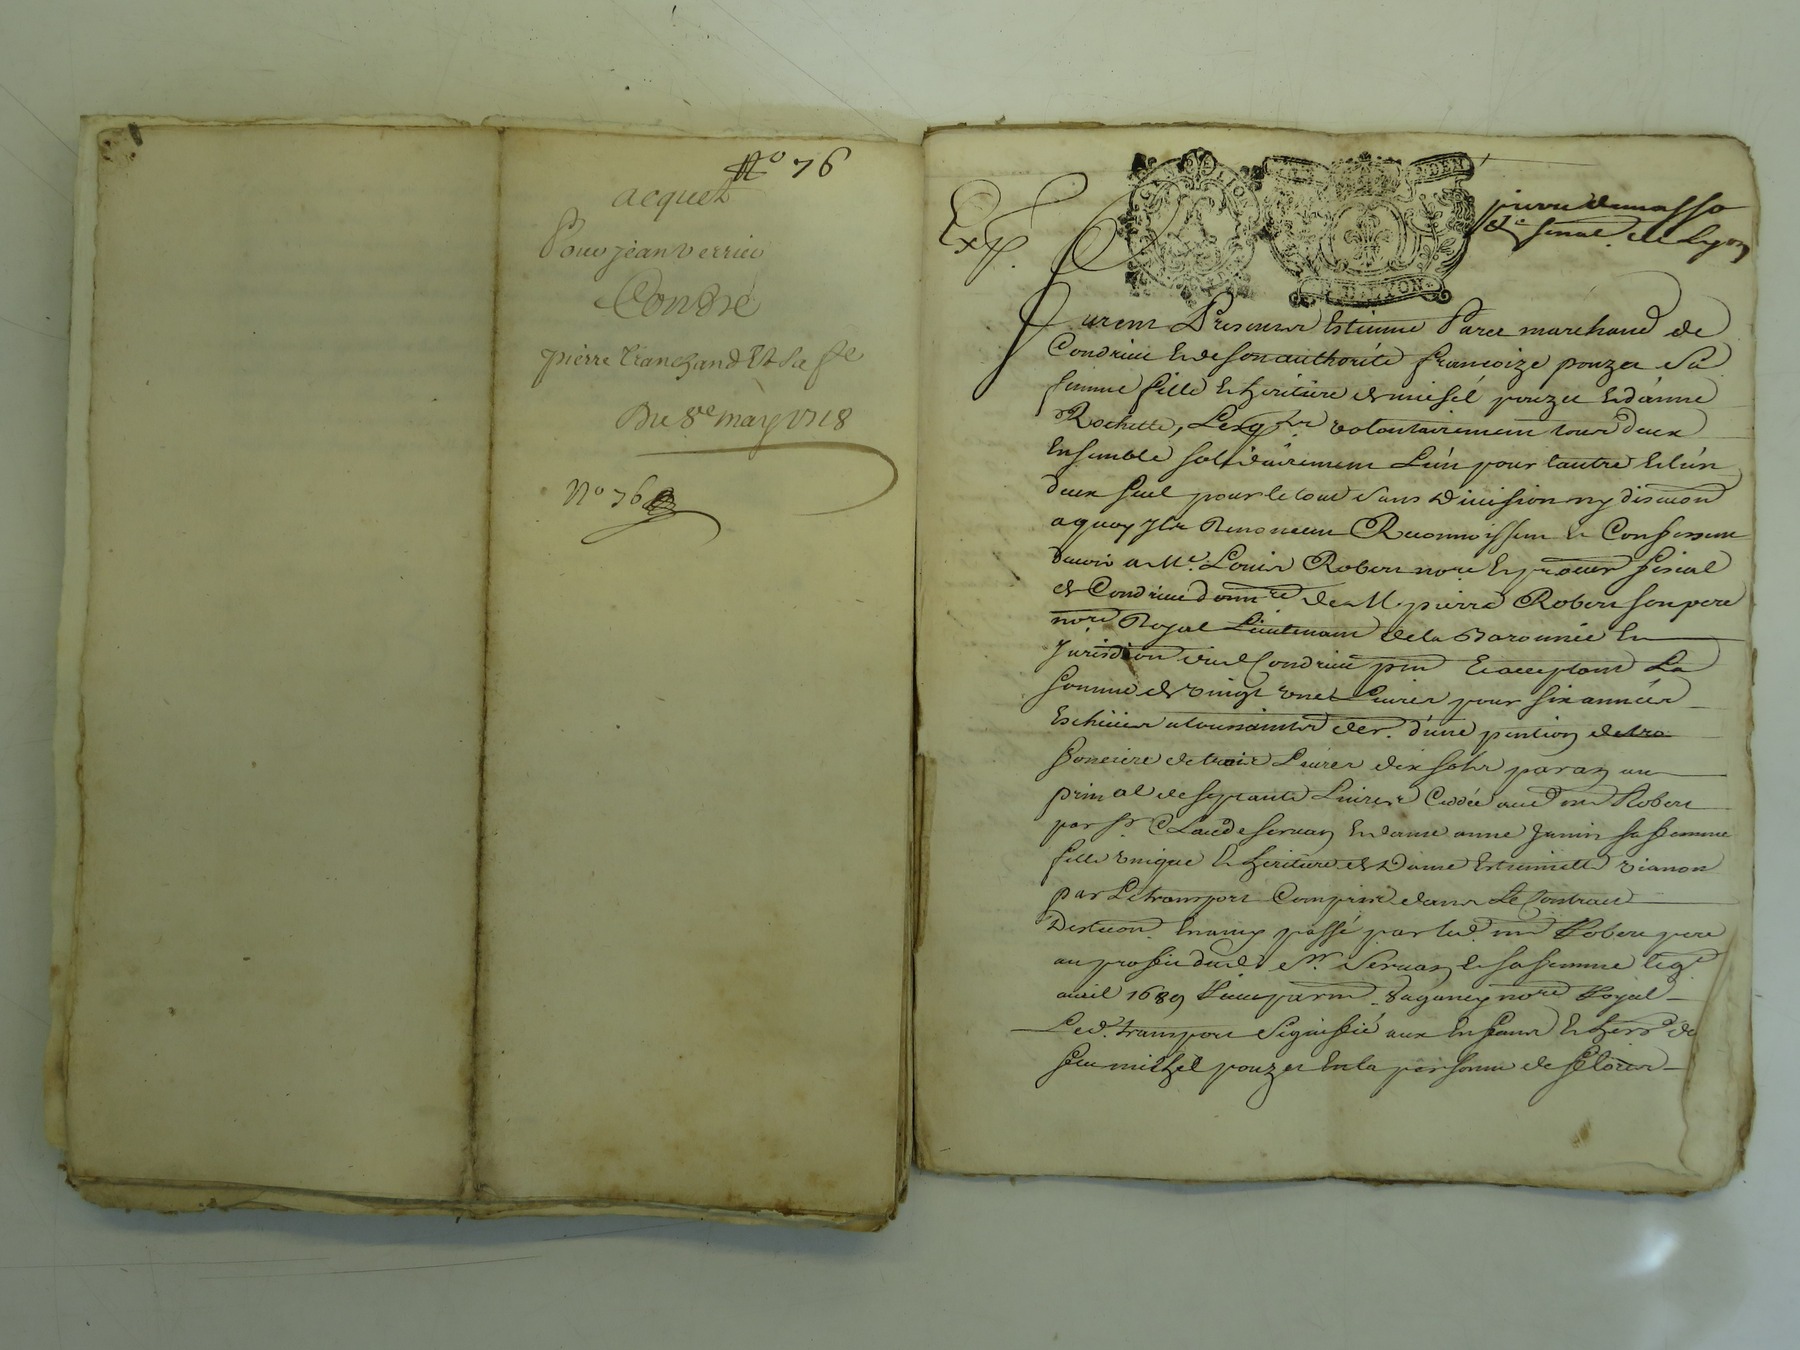 No 76
acquet
Pour jean verrieu
Contre
pierre tranchand Et Sa fe
Du 8e may 1718
No 76
Exp.
gnal de Lyon
furent Presents Estienne Paret marchand de
Condrieu & de son authorité francoize pouzet Sa
femme fille & heritiere de michel pouzet & d'anne
Rochette, Lesqls volontairement tous deux
Ensemble solidairement L'un pour l'autre & l'un
deux seul pour le tout sans Division ny discution
a quoy ils Renoncent Reconnoissent & Confessent
devoir a Me. Louis Robert nore & procur fiscal
de Condrieu donnre de M. pierre Robert son pere
nore Royal Lieutenant de la Baronnie &
Jurisdion dud Condrieu pnt & acceptant La
somme de vingt une Livres pour six années
Escheues a toussaints der. d'une pention
fonciere de trois Livres dix sols par an au
prinal de septante Livres Ceddée aud me Robert
par Sr. Claude servan & dame anne Janin sa femme
fille unique & heritiere de Dame Estiennette vianon
par Le transport Compris dans Le Contract
passé par led me Robert pere
au proffit dud Sr. Servan & sa femme le 9e
avril 1689 Receu par me. nore Royal
Led. transport Signiffié aux Enfans & hers de
feu michel pouzet En la personne de